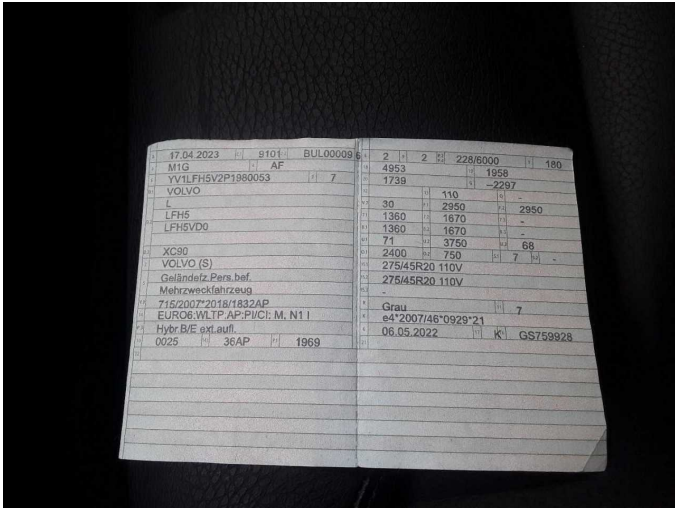 17.04.2023 9101 BUL00009 6
M1G AF
YV1LFH5V2P1980053 7
VOLVO
L
LFH5
LFH5VD0
XC90
VOLVO (S)
Geländefz.Pers.bef.
Mehrzweckfahrzeug
715/2007*2018/1832AP
EURO6;WLTP;AP;PI/CI; M, N1 I
Hybr.B/E ext.aufl.
0025 36AP 1969
2 2 228/6000 180
4953 1958
1739 –2297
110 -
30 2950 2950
1360 1670 -
1360 1670 -
71 3750 68
2400 750 7 -
275/45R20 110V
275/45R20 110V
-
Grau 7
e4*2007/46*0929*21
06.05.2022 K GS759928